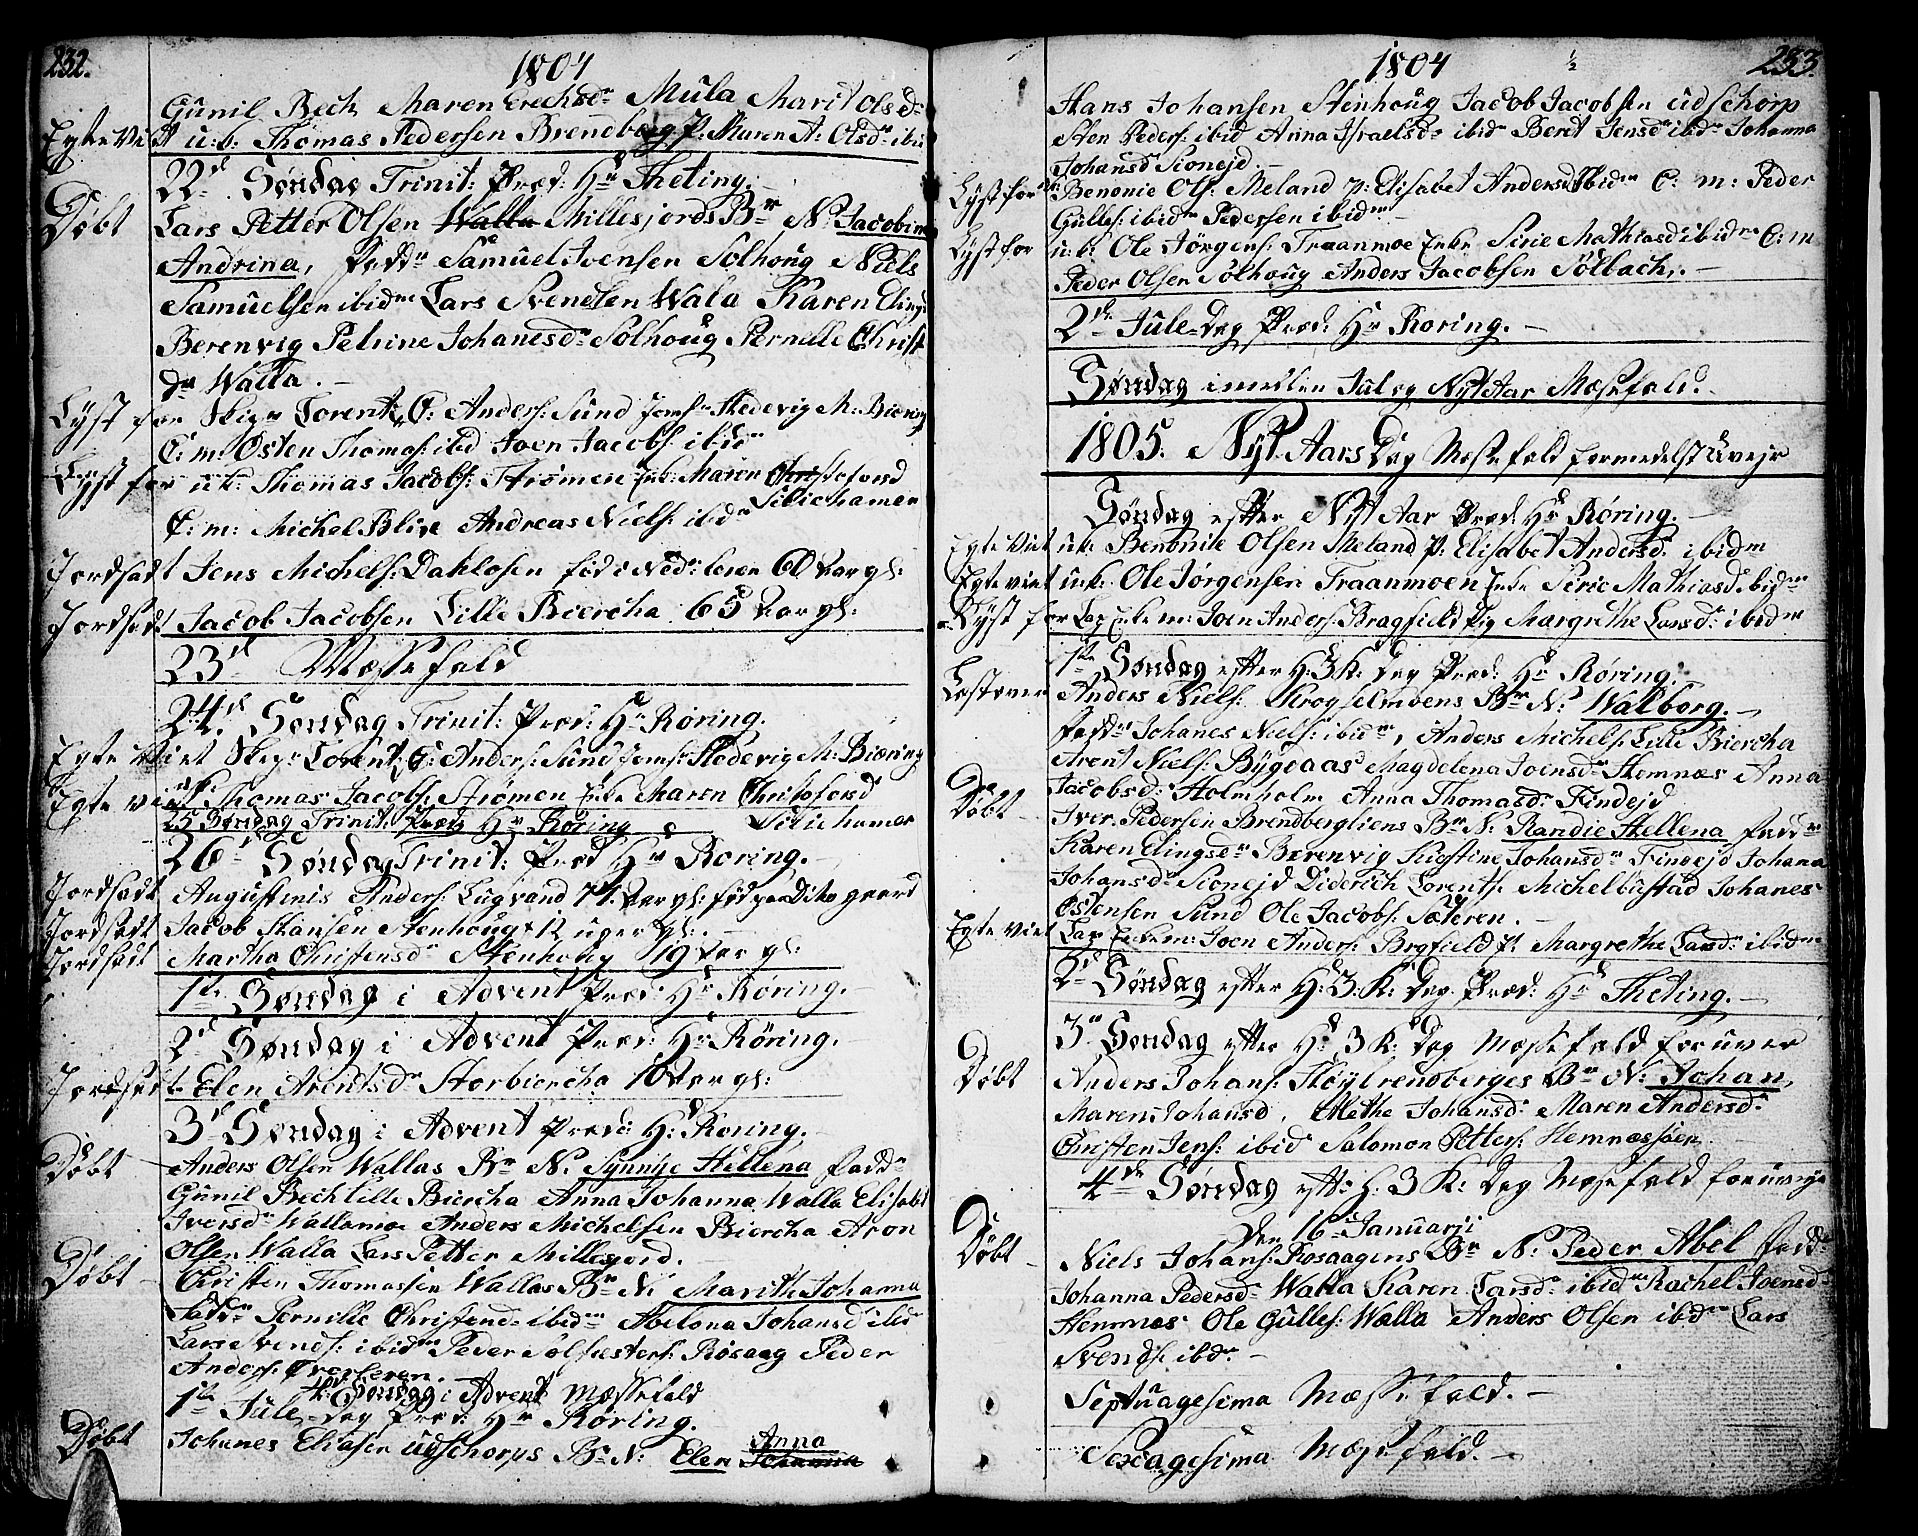 232.
1804
Gunil Bech Maren Erechsdr Mula Marit Olsdr
Egte Viet u: k: Thomas Pedersen Brendberg P: Maren A: Olsdr ibid
22d Søndag Trinit: Præd: Hr Theting.
Døbt Lars Petter Olsen Walla Millesjords Br N: Jacobina
Andrina, Fadd: Samuel Ivensen Solhoug Niels
Samuelsen ibidm Lars Svendsen Wala Karen Elingsd
Berenvig Petrine Johanesdr Solhoug Pernelle Christ
dr Walla. -
Lyst for Lorentz C: Anders: Sund Jomf: Hedevig M: Biering
C: m: Østen Thomas: ibid Joen Jacobs: ibidm
Lyst for u: k: Thomas Jacobs: Strømen Enke Maren Christofersd
Silichamer
C: m: Michel Blix Andreas Niels: ibidm
Jordsadt Jens Michels: Dahlosen fød i 60 Aar gl:
Jordsadt Jacob Jacobsen Lille Biercha 65 Aar gl:
23d Messefald
24d Søndag Trinit: Præd: Hr Røring.
Egte Viet Lorentz C: Anders: Sund Jomf: Hedevig M: Biering
Egte viet u: k: Thomas Jacobs: Strømen Enke Maren Christofersd
Silichamer
25 Søndag Trinit: Præd: Hr Røring
26d Søndag Trinit: Præd Hr Røring.
Jordsadt Augustinis Anders: Lugvand 74 Aar gl: fød paa Dito gaard
Jordsadt Jacob Hansen Stenhoug 12 uger gl: -
Jordsadt Martha Christensdr Stenhoug 19 Aar gl:
1ste Søndag i Advent Præd: Hr Røring. -
2d Søndag i Advent Præd: Hr Røring. -
Jordsadt Elen Arentsdr Storbiercha 16 Aar gl:
3d Søndag i Advent Præd: Hr Røring.
Døbt Anders Olsen Wallas Br N: Synnije Hellena Fadd:
Gunil Bech Lille Biercha Anna Johanna Walla Elisabet
Iversdr Wallamoe Anders Michelsen Biercha Aron
Olsen Walla Lars Petter Millesjord.
Døbt Christen Thomassen Wallas Br N: Marith Johanna
Fadd: Pernille Christend: ibidm Abelona Johansd ibid
Lars Svends: ibidm Peder Solfesters: Røsaag Peder
Anders:
4de Søndag i Advent Messefald
1ste Jule-Dag Præd: Hr Røring.
Døbt Johanes Eliasen Udschorps Br N: Elen Anna
Johanna
1804
1/2
233.
Hans Johansen Stenhoug Jacob Jacobsen Udschorp
Sten Peders: ibid Anna Israelsdr ibidm Beret Jensdr ibidm Johanna
Johansd Sionejd. -
Lyst for Benonie Ols: Meland P: Elisabet Andersd ibidm C: m: Peder
Gulles: ibidm Pedersen ibidm
Lyst for u: k: Ole Jørgens: Traanmoe Enke Sirie Mathiasd ibidm C: m
Peder Olsen Solhoug Anders Jacobsen Solbach. -
2de Jule-Dag Præd: Hr Røring. -
Søndag imellem Jul og Nyt Aar Messefald. -
1805. Nyt Aars Dag Messefald formedelst Uvejr
Søndag efter Nyt Aar Præd: Hr Røring. -
Egte Viet u: k: Benonie Olsen Meland P: Elisabet Andersd: ibidm
Egte viet u: k: Ole Jørgensen Traanmoen Enke Serie Mathiasd ibidm
Lyst for Lap Enkem: Joen Anders: Bragfield Pig Margrethe Larsd: ibidm
1ste Søndag efter H: 3 K: Dag Præd: Hr Røring.
Anders Niels: Krogselmoens Br N: Walborg. -
Fadd: Johanes Niels: ibidm, Anders Michels: Lille Biercha
Arent Niels: Bygdaas Magdelena Joensdr Hemnæs Anna
Jacobsd: Holmholm Anna Thomasd: Findejd
Døbt Iver Pedersen Brendbergliens Br N: Randie Hellena Fadd:
Karen Elingsdr Berenvig Kirstine Johansdr Findejd Johana
Johansd: Sionejd Diderich Lorents: Michelbustad Johanes
Østensen Sund Ole Jacobs: Sæteren. -
Egte Viet Lap Enkem: Joen Anders: Brgfield P: Margrethe Larsd: ibidm
2d Søndag efter H: 3: K: Dag Præd: Hr Theting. -
3d Søndag efter H: 3 K: Dag Messefald for uver
Døbt Anders Johans: Høylrendberges Br N: Johan,
Maren Johansd, Methe Johansd: Maren Andersd:
Christen Jens: ibid Salomon Petters: Hemnæssøen
4de Søndag eft: H: 3 K: Dag Messefald for uvejr
Den 16 Januarji
Døbt Niels Johans: Røsaagens Br N: Peder Abel Fadd:
Johanna Pedersd: Walla Karen Larsd: ibidm Rachel Joensd:
Hemnæs Ole Gulles: Walla Anders Olsen ibidm Lars
Svends: ibidm -
Septuagesima Messefald. -
Sexagesima Messefald. -